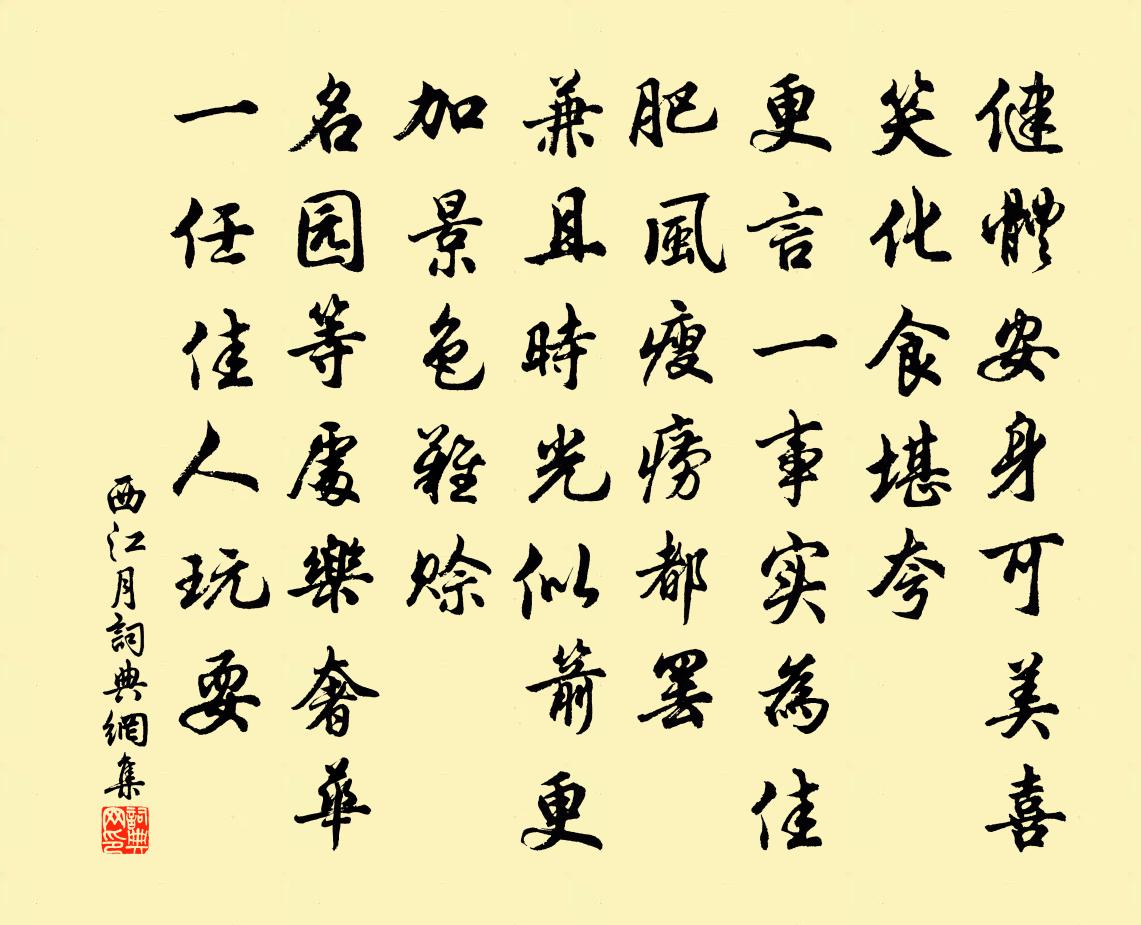 健體安身可美喜
笑化食堪夸
更言一事实為佳
肥風瘦癆都罢
兼且時光似箭更
加景色難賒
名园等處樂奢華
一任佳人玩耍
西江月詞典網集
詞典网印